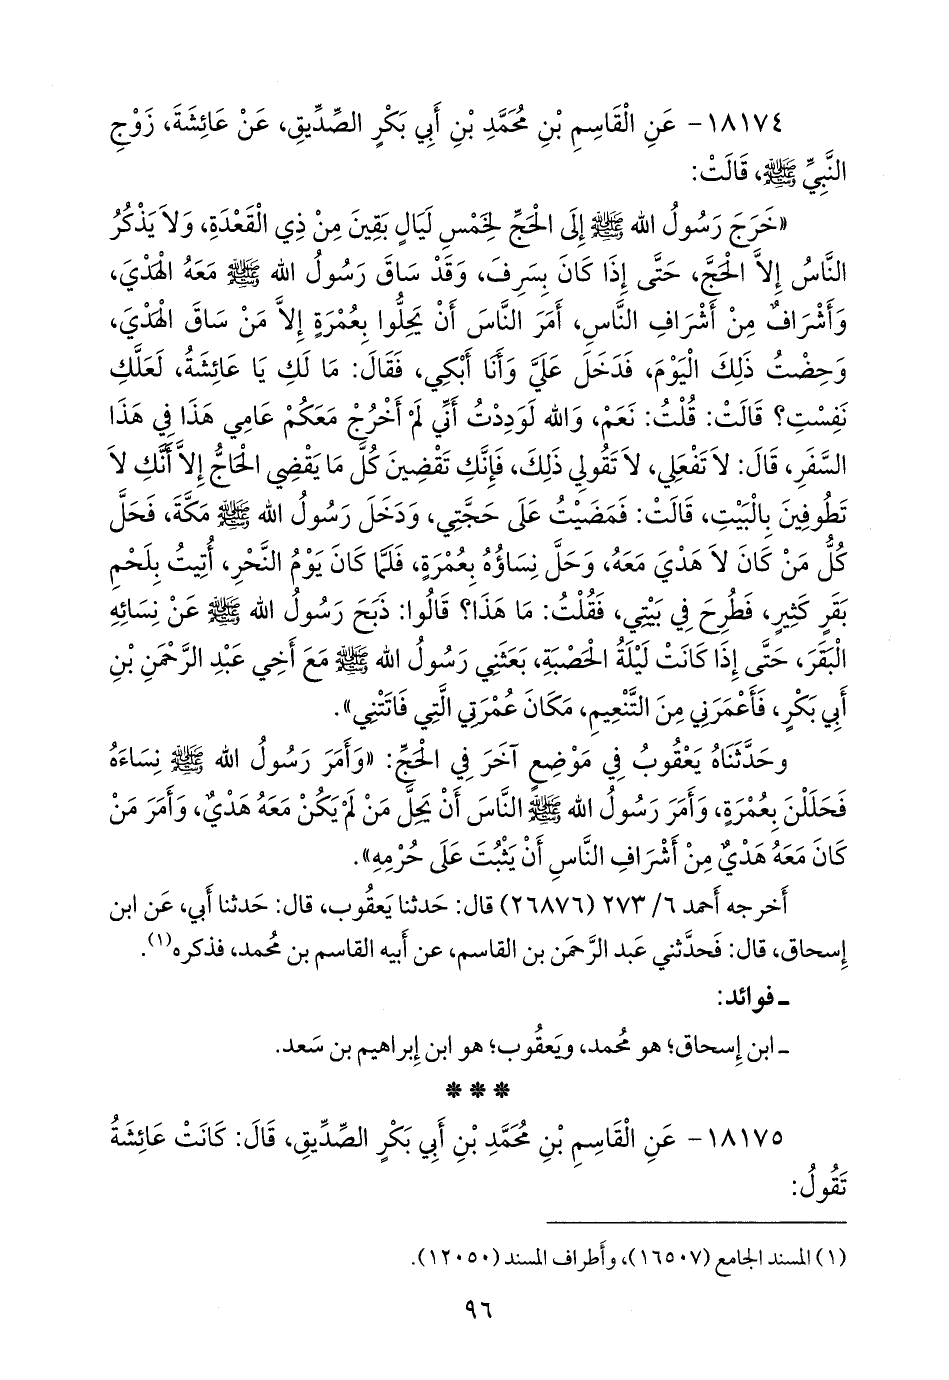 ١٨١٧٤- عَنِ الْقَاسِمِ بْنِ مُحَمَّدِ بْنِ أَبِي بَكْرٍ الصِّدِّيقِ، عَنْ عَائِشَةَ، زَوْجِ
النَّبِيِّ ﷺ، قَالَتْ:
«خَرَجَ رَسُولُ الله ﷺ إِلَى الْحَجِّ لِخَمْسِ لَيَالٍ بَقِينَ مِنْ ذِي الْقَعْدَةِ، وَلاَ يَذْكُرُ
النَّاسُ إِلاَّ الْحَجَّ، حَتَّى إِذَا كَانَ بِسَرِفَ، وَقَدْ سَاقَ رَسُولُ الله ﷺ مَعَهُ الْهَدْيَ،
وَأَشْرَافٌ مِنْ أَشْرَافِ النَّاسِ، أَمَرَ النَّاسَ أَنْ يَحِلُّوا بِعُمْرَةٍ إِلاَّ مَنْ سَاقَ الْهَدْيَ،
وَحِضْتُ ذَلِكَ الْيَوْمَ، فَدَخَلَ عَلَيَّ وَأَنَا أَبْكِي، فَقَالَ: مَا لَكِ يَا عَائِشَةُ، لَعَلَّكِ
نَفِسْتِ؟ قَالَتْ: قُلْتُ: نَعَمْ، وَالله لَوَدِدْتُ أَنِّي لَمْ أَخْرُجْ مَعَكُمْ عَامِي هَذَا فِي هَذَا
السَّفَرِ، قَالَ: لاَ تَفْعَلِي، لاَ تَقُولِي ذَلِكَ، فَإِنَّكِ تَقْضِينَ كُلَّ مَا يَقْضِي الْحَاجُّ إِلاَّ أَنَّكِ لاَ
تَطُوفِينَ بِالْبَيْتِ، قَالَتْ: فَمَضَيْتُ عَلَى حَجَّتِي، وَدَخَلَ رَسُولُ الله ﷺ مَكَّةَ، فَحَلَّ
كُلُّ مَنْ كَانَ لاَ هَدْيَ مَعَهُ، وَحَلَّ نِسَاؤُهُ بِعُمْرَةٍ، فَلَمَّا كَانَ يَوْمُ النَّحْرِ، أُتِيتُ بِلَحْمِ
بَقَرٍ كَثِيرٍ، فَطُرِحَ فِي بَيْتِي، فَقُلْتُ: مَا هَذَا؟ قَالُوا: ذَبَحَ رَسُولُ الله ﷺ عَنْ نِسَائِهِ
الْبَقَرَ، حَتَّى إِذَا كَانَتْ لَيْلَةُ الْحَصْبَةِ، بَعَثَنِي رَسُولُ الله ﷺ مَعَ أَخِي عَبْدِ الرَّحْمَنِ بْنِ
أَبِي بَكْرٍ، فَأَعْمَرَنِي مِنَ التَّنْعِيمِ، مَكَانَ عُمْرَتِي الَّتِي فَاتَتْنِي».
وحَدَّثَنَاهُ يَعْقُوبُ فِي مَوْضِعٍ آخَرَ فِي الْحَجِّ: «وَأَمَرَ رَسُولُ الله ﷺ نِسَاءَهُ
فَحَلَلْنَ بِعُمْرَةٍ، وَأَمَرَ رَسُولُ الله ﷺ النَّاسَ أَنْ يَحِلَّ مَنْ لَمْ يَكُنْ مَعَهُ هَدْيٌ، وَأَمَرَ مَنْ
كَانَ مَعَهُ هَدْيٌ مِنْ أَشْرَافِ النَّاسِ أَنْ يَثْبُتَ عَلَى حُرْمِهِ».
أَخرجه أَحمد ٦/ ٢٧٣ (٢٦٨٧٦) قال: حَدثنا يَعقُوب، قال: حَدثنا أَبي، عَن ابن
إِسحاق، قال: فَحدَّثني عَبد الرَّحمَن بن القاسم، عن أَبيه القاسم بن مُحمد، فذكره(١).
ـ فوائد:
ـ ابن إِسحاق؛ هو مُحمد، ويَعقُوب؛ هو ابن إِبراهيم بن سَعد.
***
١٨١٧٥- عَنِ الْقَاسِمِ بْنِ مُحَمَّدِ بْنِ أَبِي بَكْرٍ الصِّدِّيقِ، قَالَ: كَانَتْ عَائِشَةُ
تَقُولُ:
(١) المسند الجامع (١٦٥٠٧)، وأَطراف المسند (١٢٠٥٠).
٩٦